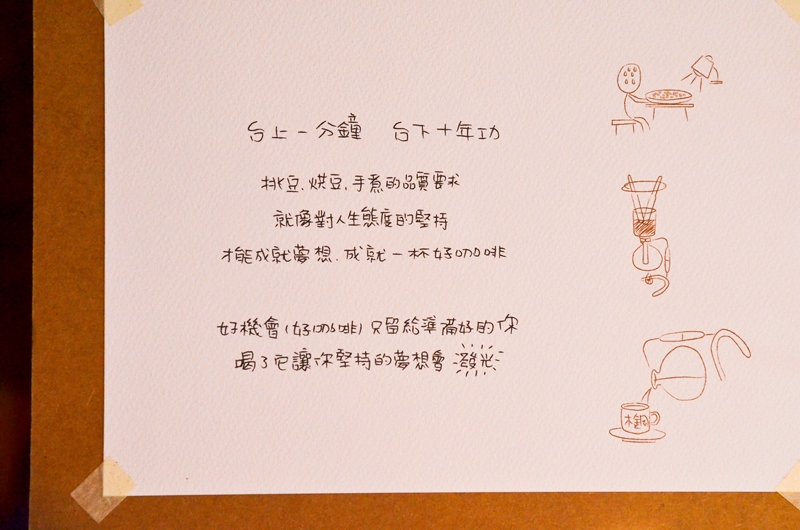 台上一分鐘 台下十年功
挑豆、烘豆、手煮的品質要求
就像對人生態度的堅持
才能成就夢想、成就一杯好咖啡
好機會(好咖啡)只留給準備好的你
喝了它讓你堅持的夢想會發光